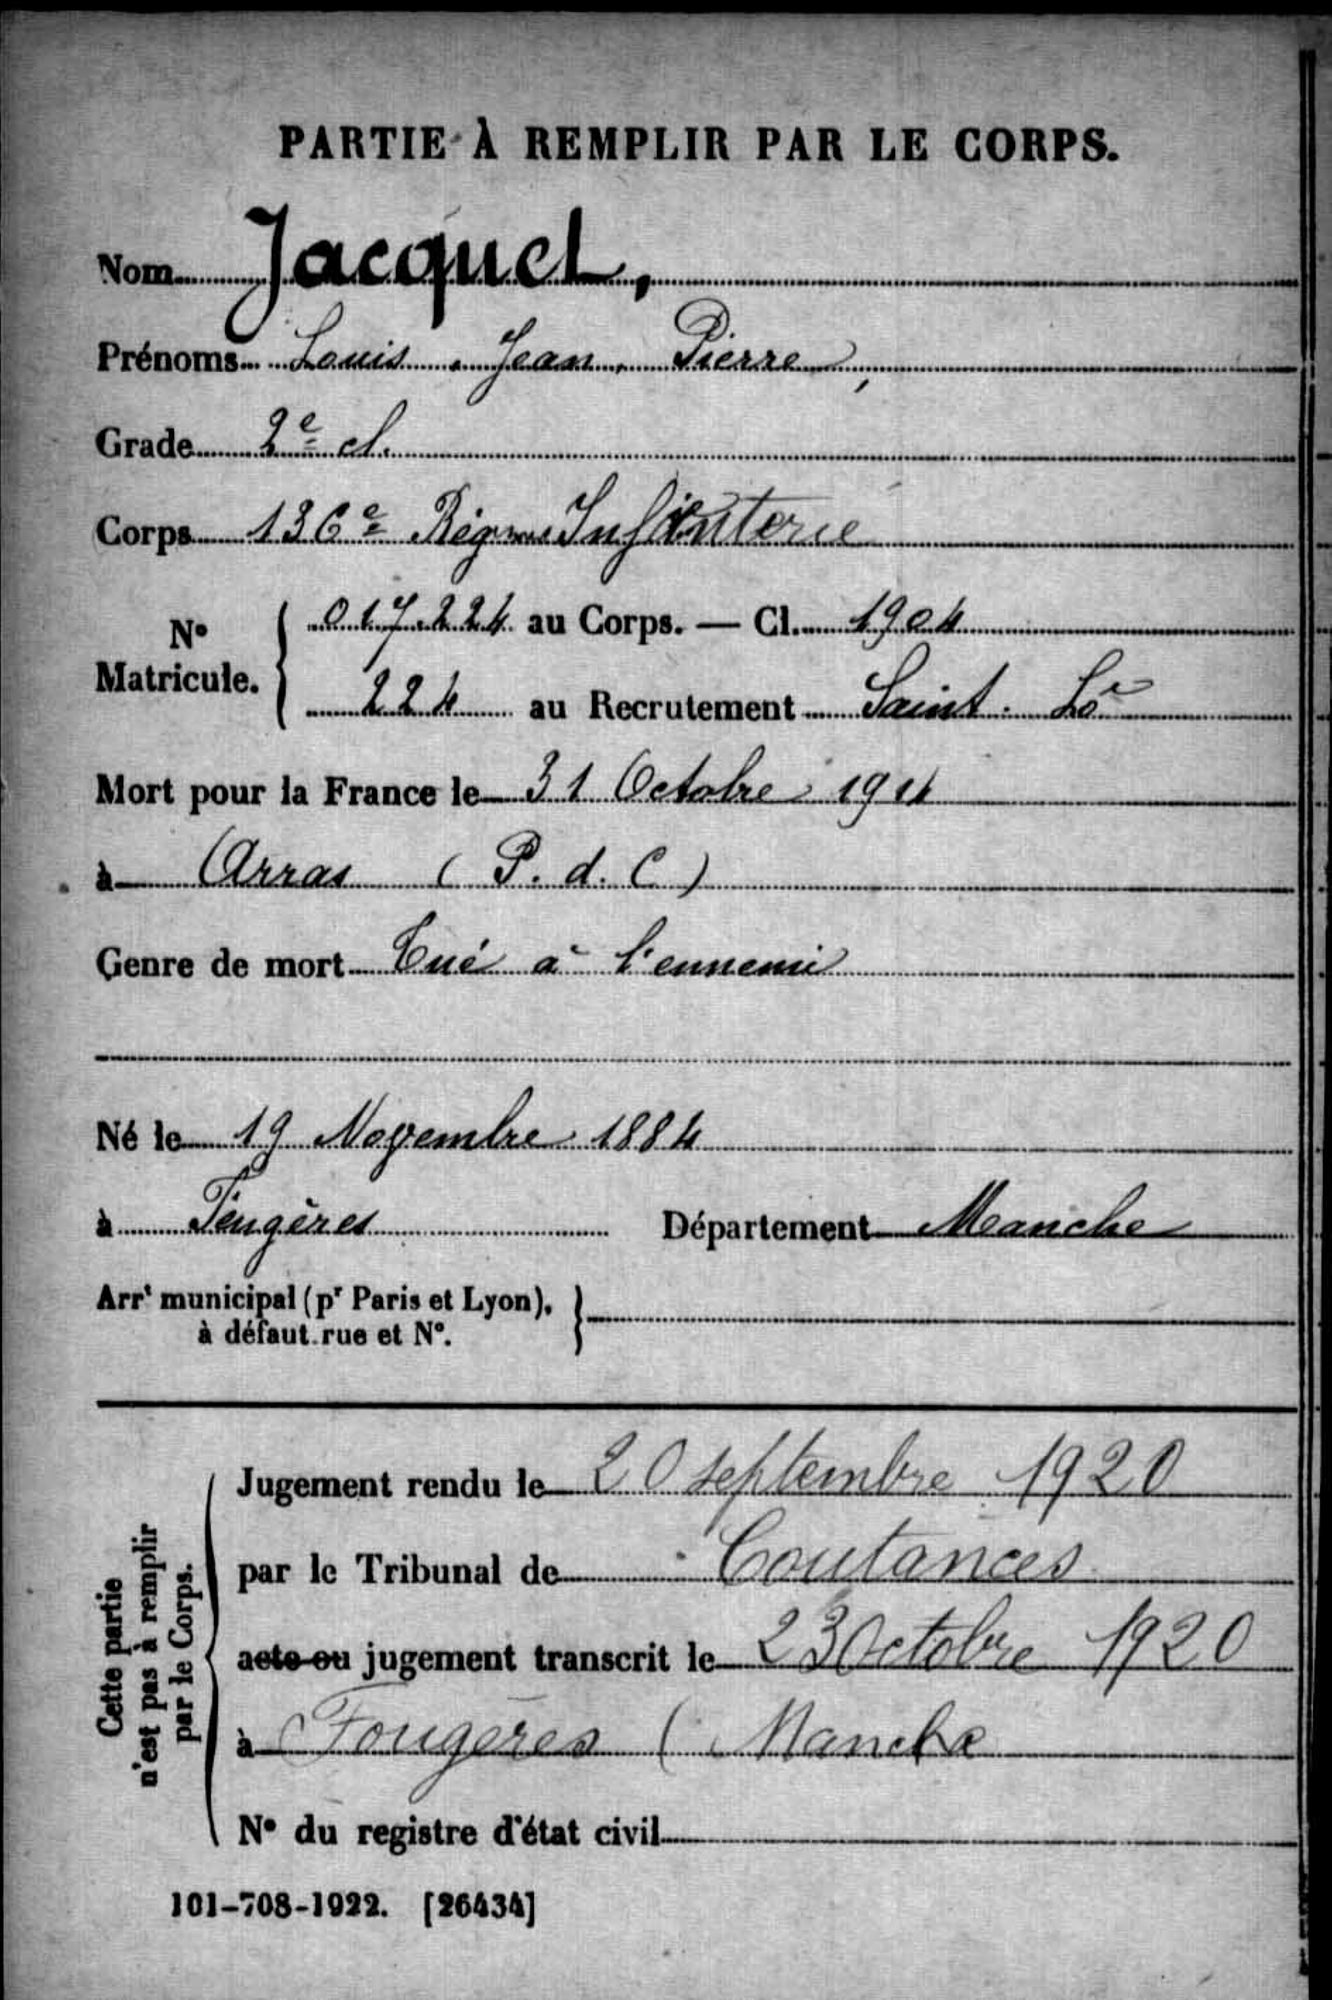 PARTIE À REMPLIR PAR LE CORPS.
Nom Jacquet,
Prénoms Louis, Jean, Pierre,
Grade 2e cl.
Corps 136e Régmt Infanterie
N° Matricule. 017.224 au Corps. — Cl. 1904
224 au Recrutement Saint-Lô
Mort pour la France le 31 Octobre 1914
à Arras (P. d. C)
Genre de mort Tué à l'ennemi
Né le 19 Novembre 1884
à Feugères Département Manche
Arrt municipal (pr Paris et Lyon), à défaut rue et N°.
Cette partie n'est pas à remplir par le Corps.
Jugement rendu le 20 septembre 1920
par le Tribunal de Coutances
acte ou jugement transcrit le 23 Octobre 1920
à Fougères (Manche
N° du registre d'état civil
101-708-1922. [26434]